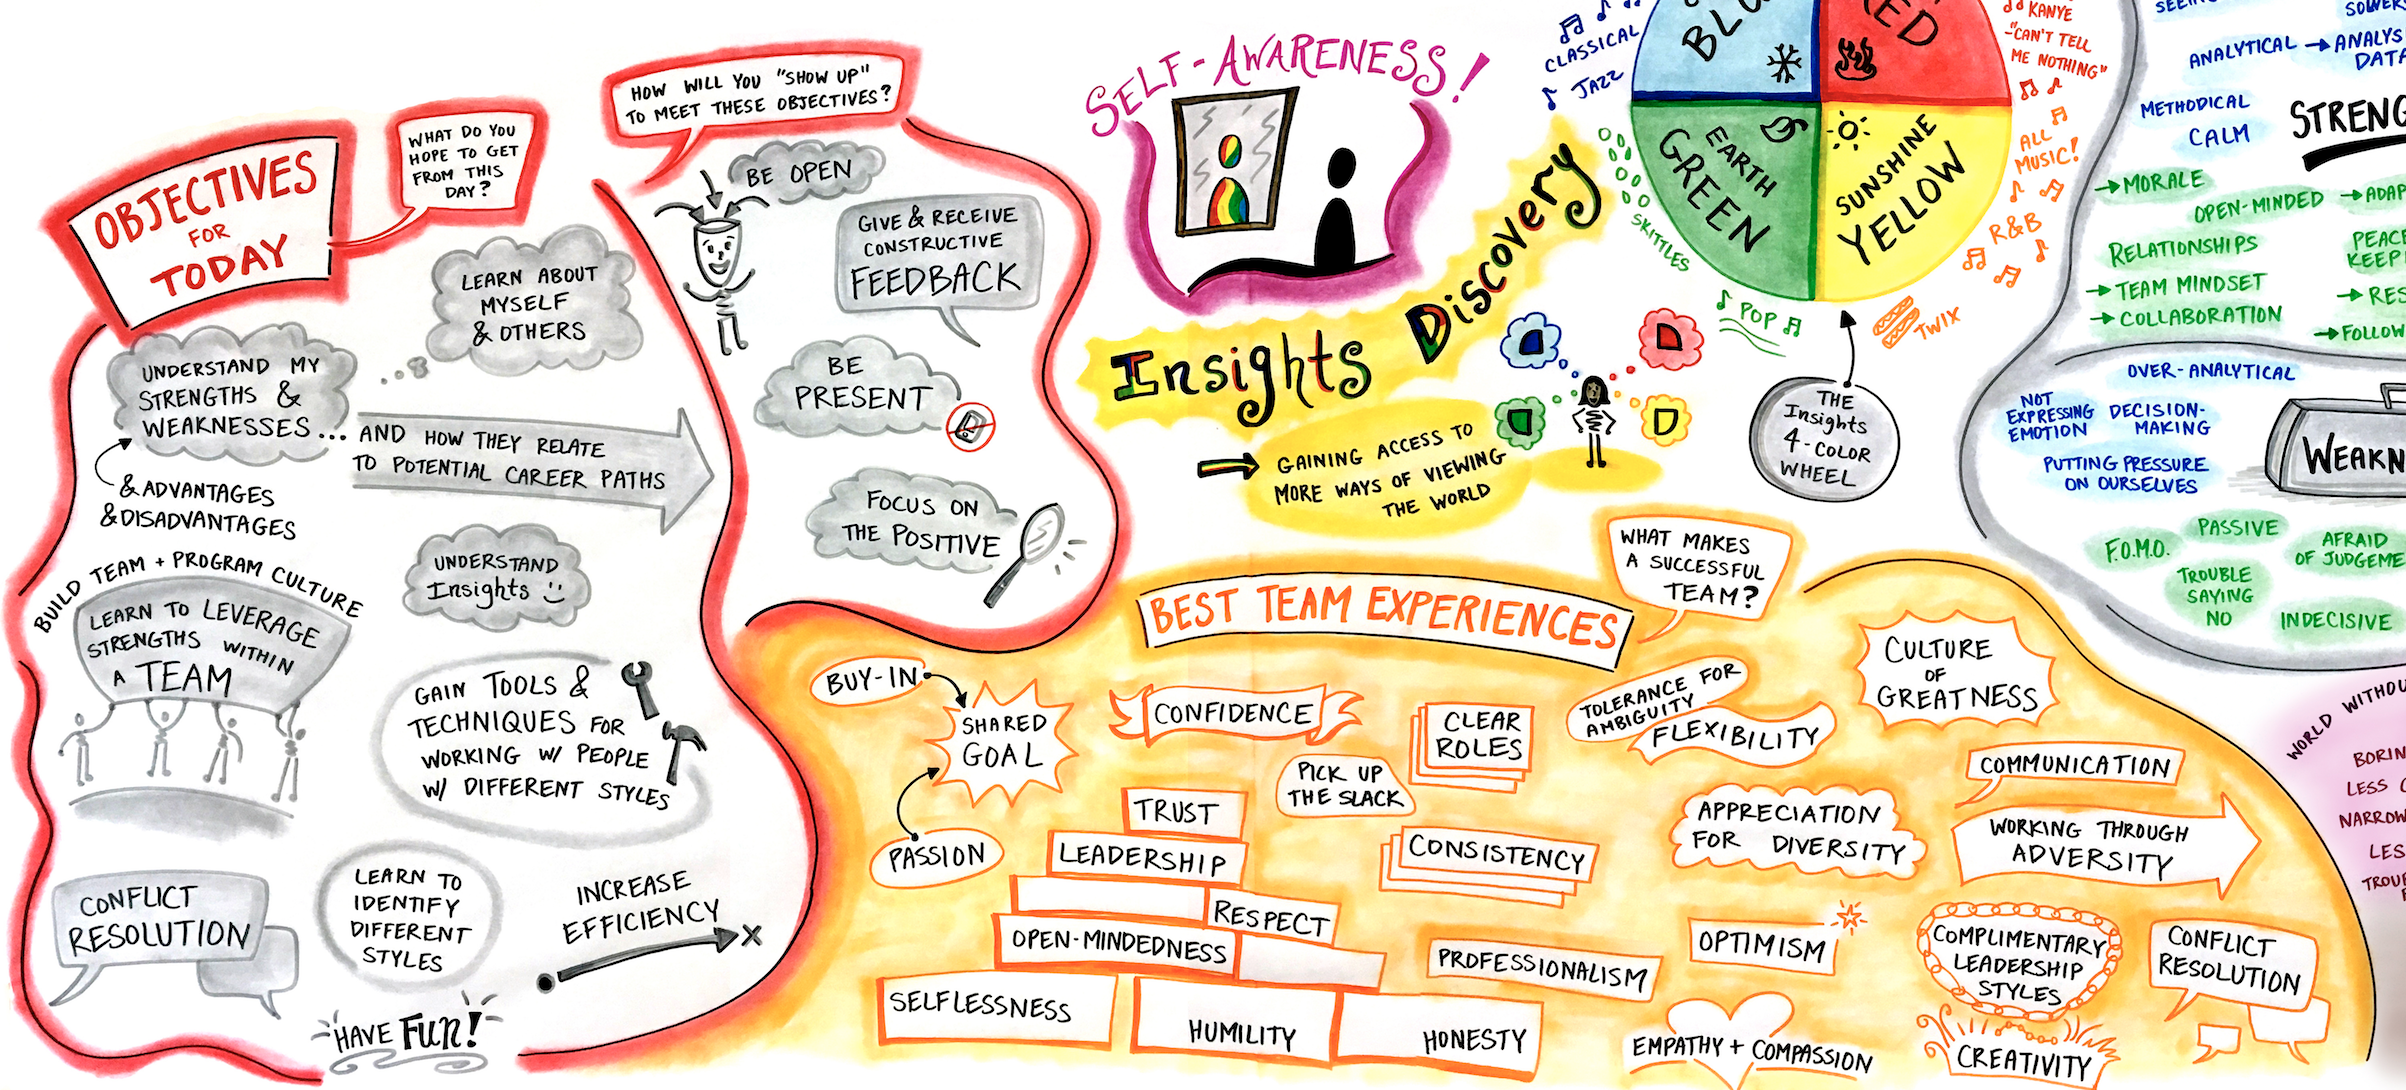 OBJECTIVES
FOR
TODAY
WHAT DO YOU
HOPE TO GET
FROM THIS
DAY?
LEARN ABOUT
MYSELF
& OTHERS
UNDERSTAND MY
STRENGTHS &
WEAKNESSES...
& ADVANTAGES
& DISADVANTAGES
AND HOW THEY RELATE
TO POTENTIAL CAREER PATHS
UNDERSTAND
Insights
BUILD TEAM + PROGRAM CULTURE
LEARN TO LEVERAGE
STRENGTHS WITHIN
A TEAM
GAIN TOOLS &
TECHNIQUES FOR
WORKING W/ PEOPLE
W/ DIFFERENT STYLES
CONFLICT
RESOLUTION
LEARN TO
IDENTIFY
DIFFERENT
STYLES
INCREASE
EFFICIENCY
HAVE FUN!
HOW WILL YOU "SHOW UP"
TO MEET THESE OBJECTIVES?
BE OPEN
GIVE & RECEIVE
CONSTRUCTIVE
FEEDBACK
BE
PRESENT
FOCUS ON
THE POSITIVE
SELF-AWARENESS!
Insights Discovery
GAINING ACCESS TO
MORE WAYS OF VIEWING
THE WORLD
CLASSICAL
JAZZ
EARTH
GREEN
SUNSHINE
YELLOW
SKITTLES
POP
TWIX
KANYE
"CAN'T TELL
ME NOTHING"
ALL
MUSIC!
R&B
THE
Insights
4-COLOR
WHEEL
ANALYTICAL
METHODICAL
CALM
MORALE
OPEN-MINDED
RELATIONSHIPS
TEAM MINDSET
COLLABORATION
FOLLOW
OVER-ANALYTICAL
NOT
EXPRESSING
EMOTION
DECISION-
MAKING
PUTTING PRESSURE
ON OURSELVES
F.O.M.O.
PASSIVE
AFRAID
OF JUDGEME
TROUBLE
SAYING
NO
INDECISIVE
BEST TEAM EXPERIENCES
WHAT MAKES
A SUCCESSFUL
TEAM?
BUY-IN
SHARED
GOAL
PASSION
CONFIDENCE
CLEAR
ROLES
PICK UP
THE SLACK
TRUST
LEADERSHIP
RESPECT
OPEN-MINDEDNESS
SELFLESSNESS
HUMILITY
HONESTY
CONSISTENCY
PROFESSIONALISM
TOLERANCE FOR
AMBIGUITY
FLEXIBILITY
CULTURE
OF
GREATNESS
COMMUNICATION
APPRECIATION
FOR DIVERSITY
WORKING THROUGH
ADVERSITY
OPTIMISM
COMPLIMENTARY
LEADERSHIP
STYLES
CONFLICT
RESOLUTION
EMPATHY + COMPASSION
CREATIVITY
WORLD WITHOU